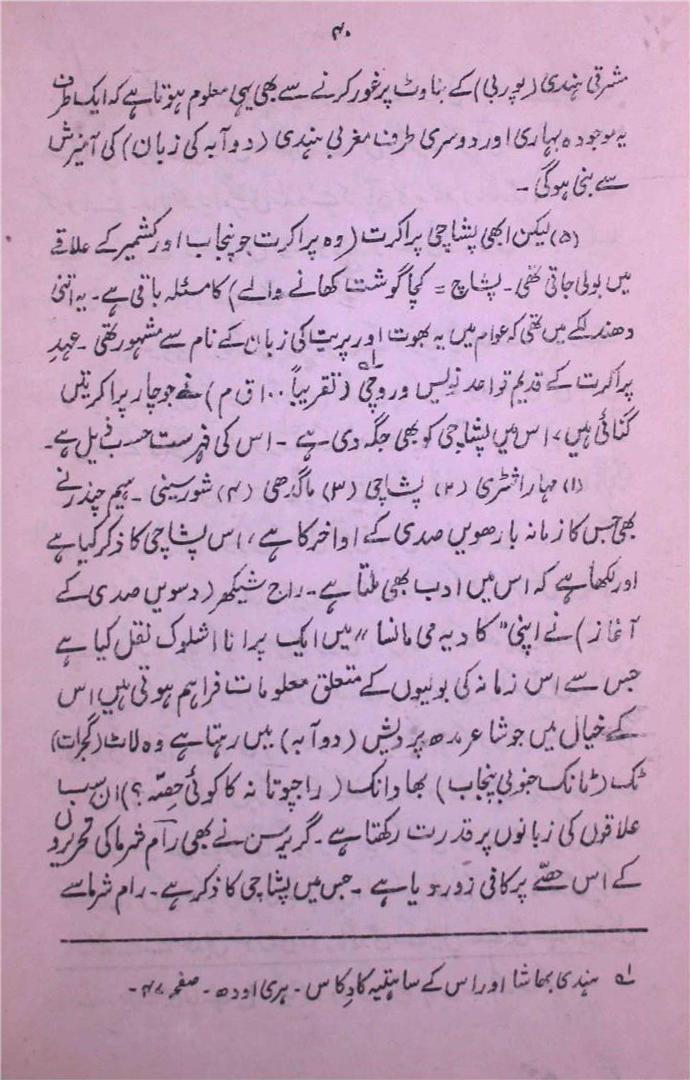 ۴۰
مشرقی ہندی (پوربی) کے بناوٹ پر غور کرنے سے بھی یہی معلوم ہوتا ہے کہ ایک طرف
یہ موجودہ بہاری اور دوسری طرف مغربی ہندی (دوآبہ کی زبان) کی آمیزش
سے بنی ہوگی -
(۵) لیکن ابھی پشاچی پراکرت (وہ پراکرت جو پنجاب اور کشمیر کے علاقے
میں بولی جاتی تھی - پشاچ = کچا گوشت کھانے والے) کا مسئلہ باقی ہے - یہ اتنی
دھندلکے میں تھی کہ عوام میں یہ بھوت اور پریت کی زبان کے نام سے مشہور تھی - عہدِ
پراکرت کے قدیم قواعد نویس وروچی لہ (تقریباً ۱۰۰ ق م) نے جو چار پراکرتیں
گنائی ہیں، اس میں پشاچی کو بھی جگہ دی ہے - اس کی فہرست حسب ذیل ہے -
(۱) مہاراشٹری (۲) پشاچی (۳) ماگدھی (۴) شورسینی - ہیم چندر نے
بھی جس کا زمانہ بارھویں صدی کے اواخر کا ہے، اس پشاچی کا ذکر کیا ہے
اور لکھا ہے کہ اس میں ادب بھی ملتا ہے - راج شیکھر (دسویں صدی کے
آغاز) نے اپنی "کا دیہ می مانسا" میں ایک پرانا اشلوک نقل کیا ہے
جس سے اس زمانہ کی بولیوں کے متعلق معلومات فراہم ہوتی ہیں اس
کے خیال میں جو شاعر مدھ پردیش (دوآبہ) میں رہتا ہے وہ لاٹ (گجرات)
ٹک (ٹانک جنوبی پنجاب) بھادانک (راجپوتانہ کا کوئی حصّہ ؟) ان سب
علاقوں کی زبانوں پر قدرت رکھتا ہے - گریرسن نے بھی رام شرما کی تحریروں
کے اس حصّے پر کافی زور دیا ہے - جس میں پشاچی کا ذکر ہے - رام شرما سے
لہ ہندی بھاشا اور اس کے ساہتیہ کا وکاس - ہری اودھ - صفحہ ۴۷ -